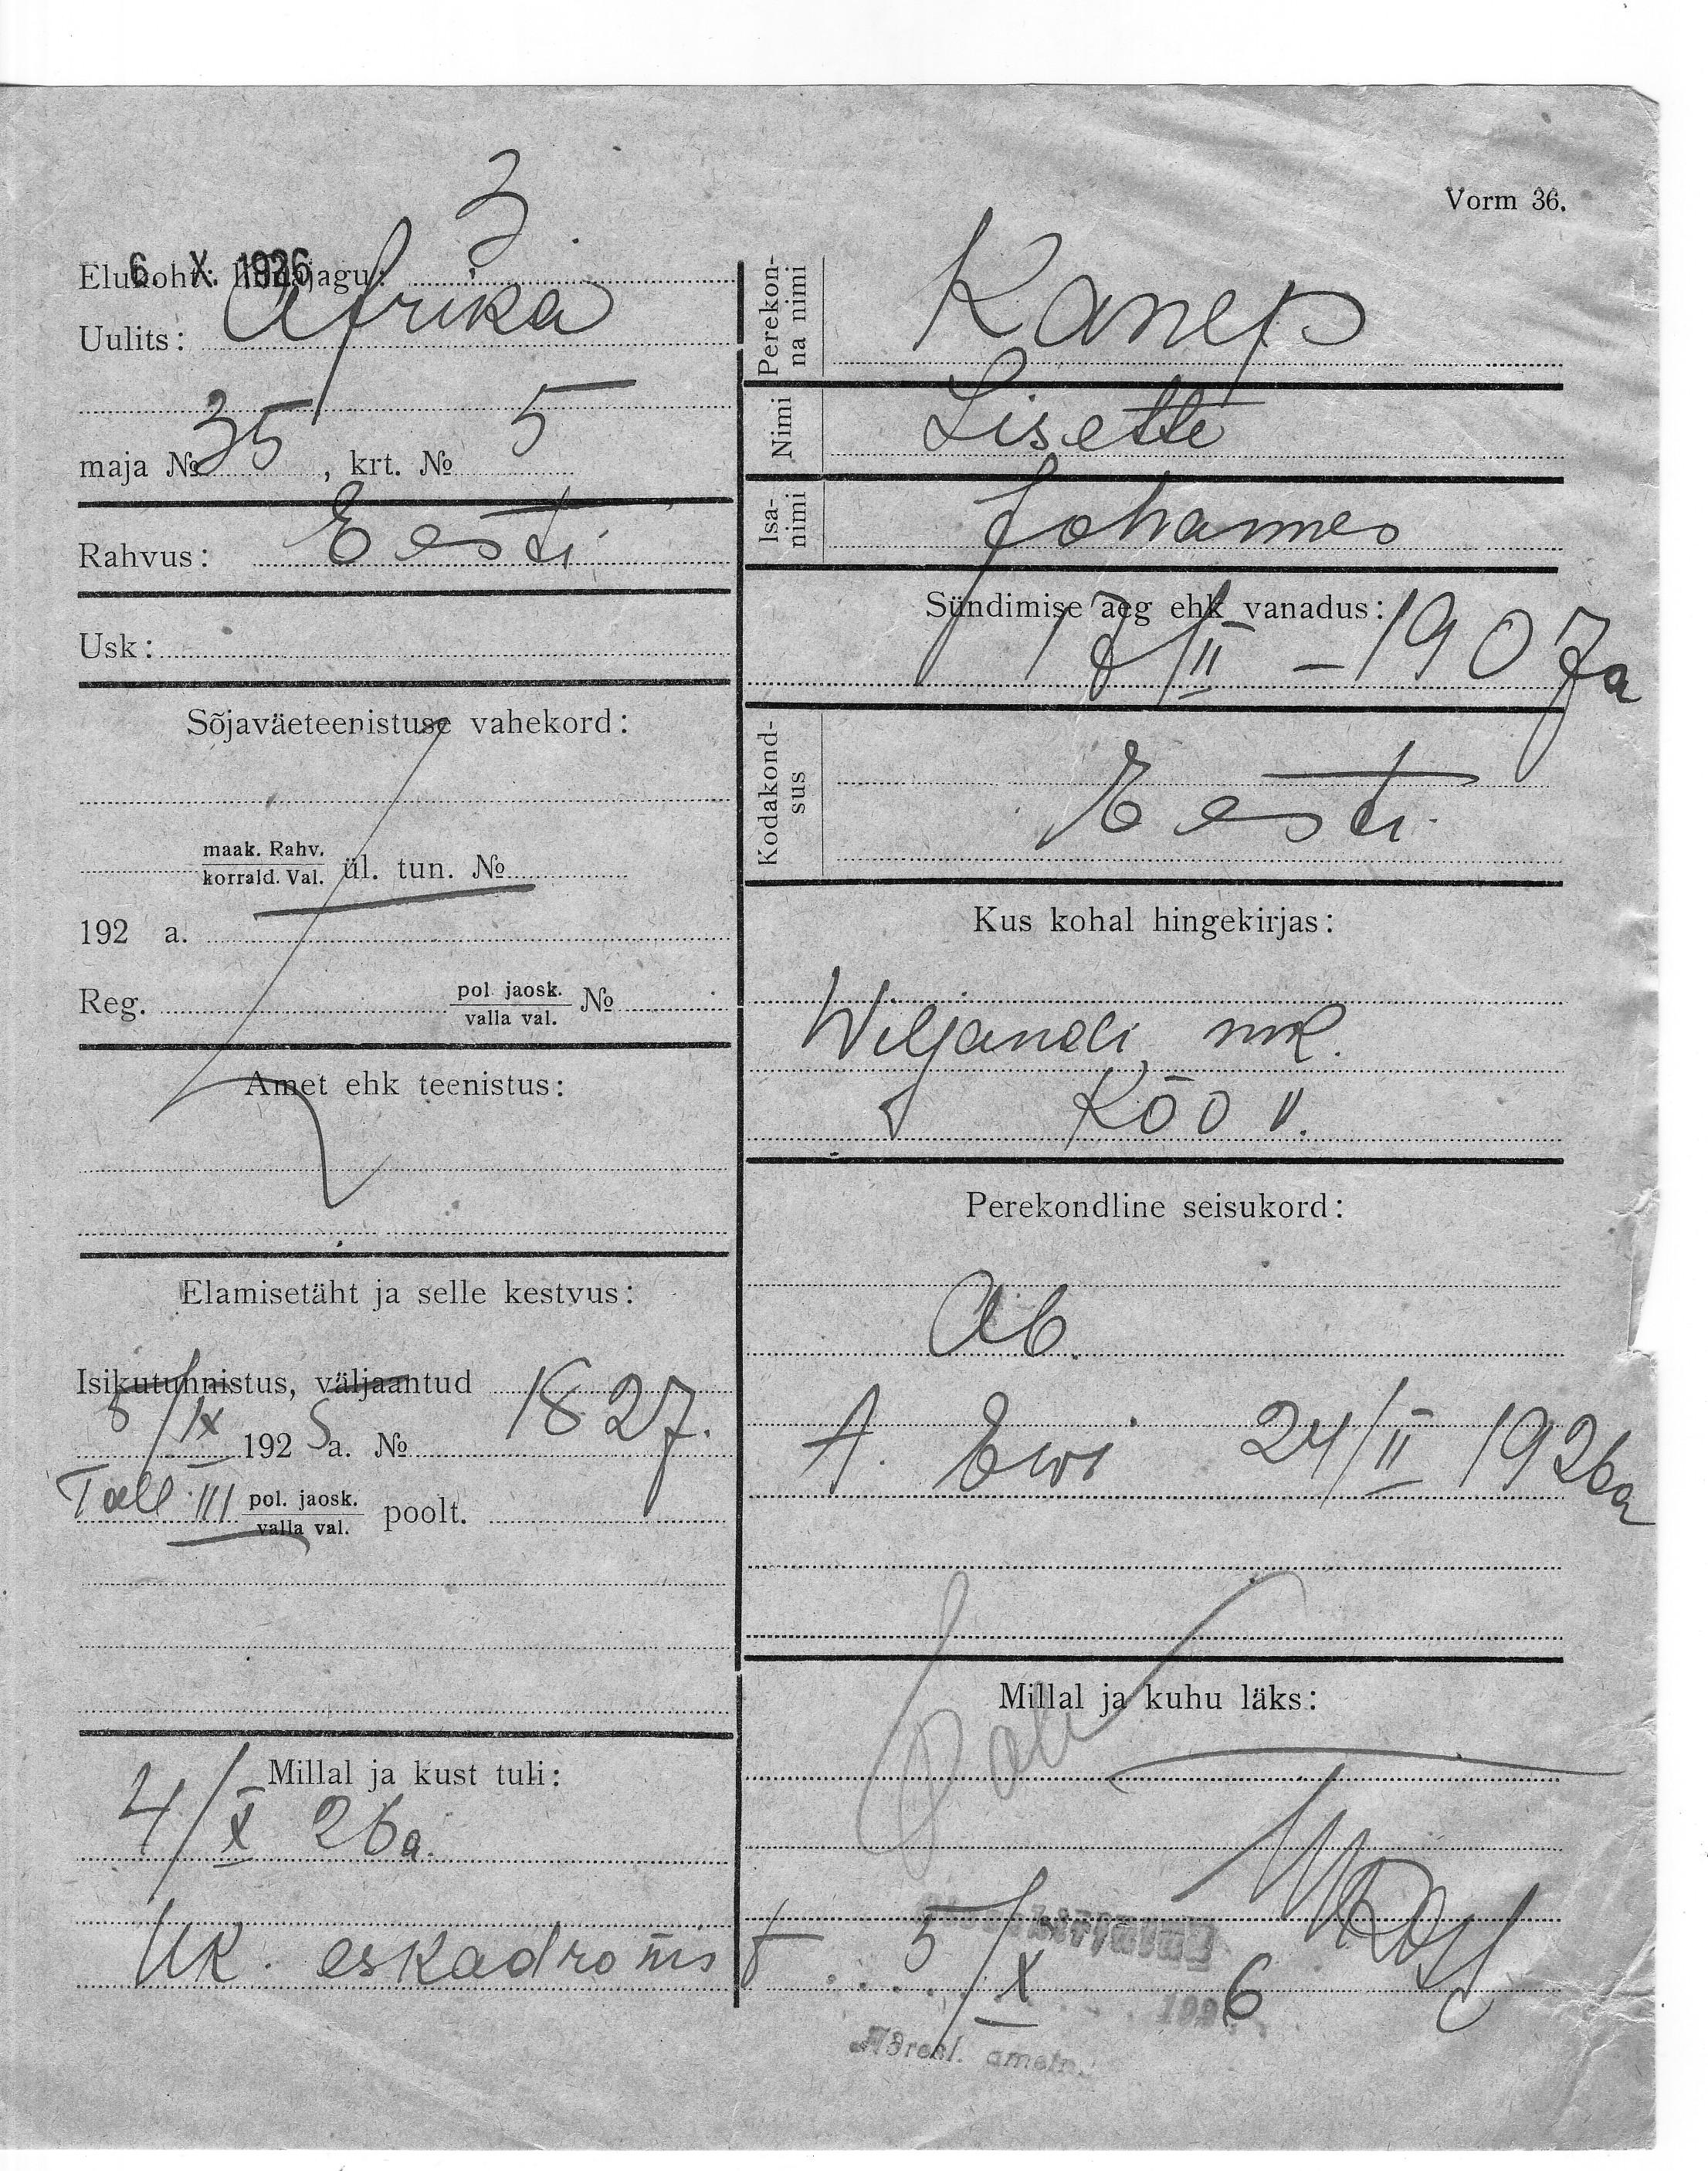 Vorm 36.
3
Elukoht: linnajagu:
6. X. 1926
Uulits: Afrika
maja № 35, krt. № 5
Rahvus: Eesti
Usk:
Sõjaväeteenistuse vahekord:
maak. Rahv.
korrald. Val. ül. tun. №
192 a.
Reg. pol. jaosk.
valla val. №
Amet ehk teenistus:
Elamisetäht ja selle kestvus:
Isikutunnistus, väljaantud 1827.
5/IX 1925 a. №
Tall. III pol. jaosk.
valla val. poolt.
Millal ja kust tuli:
4/X 26a.
Uk. eskadronist
Perekon-
na nimi
Kanep
Nimi
Lisette
Isa-
nimi
Johannes
Sündimise aeg ehk vanadus:
17/II – 1907a
Kodakond-
sus
Eesti
Kus kohal hingekirjas:
Wiljandi mk.
Kõo v.
Perekondline seisukord:
Ab.
t. Ewi 24/II 1926a
Millal ja kuhu läks:
5/X 1926
Adresl. ametn.